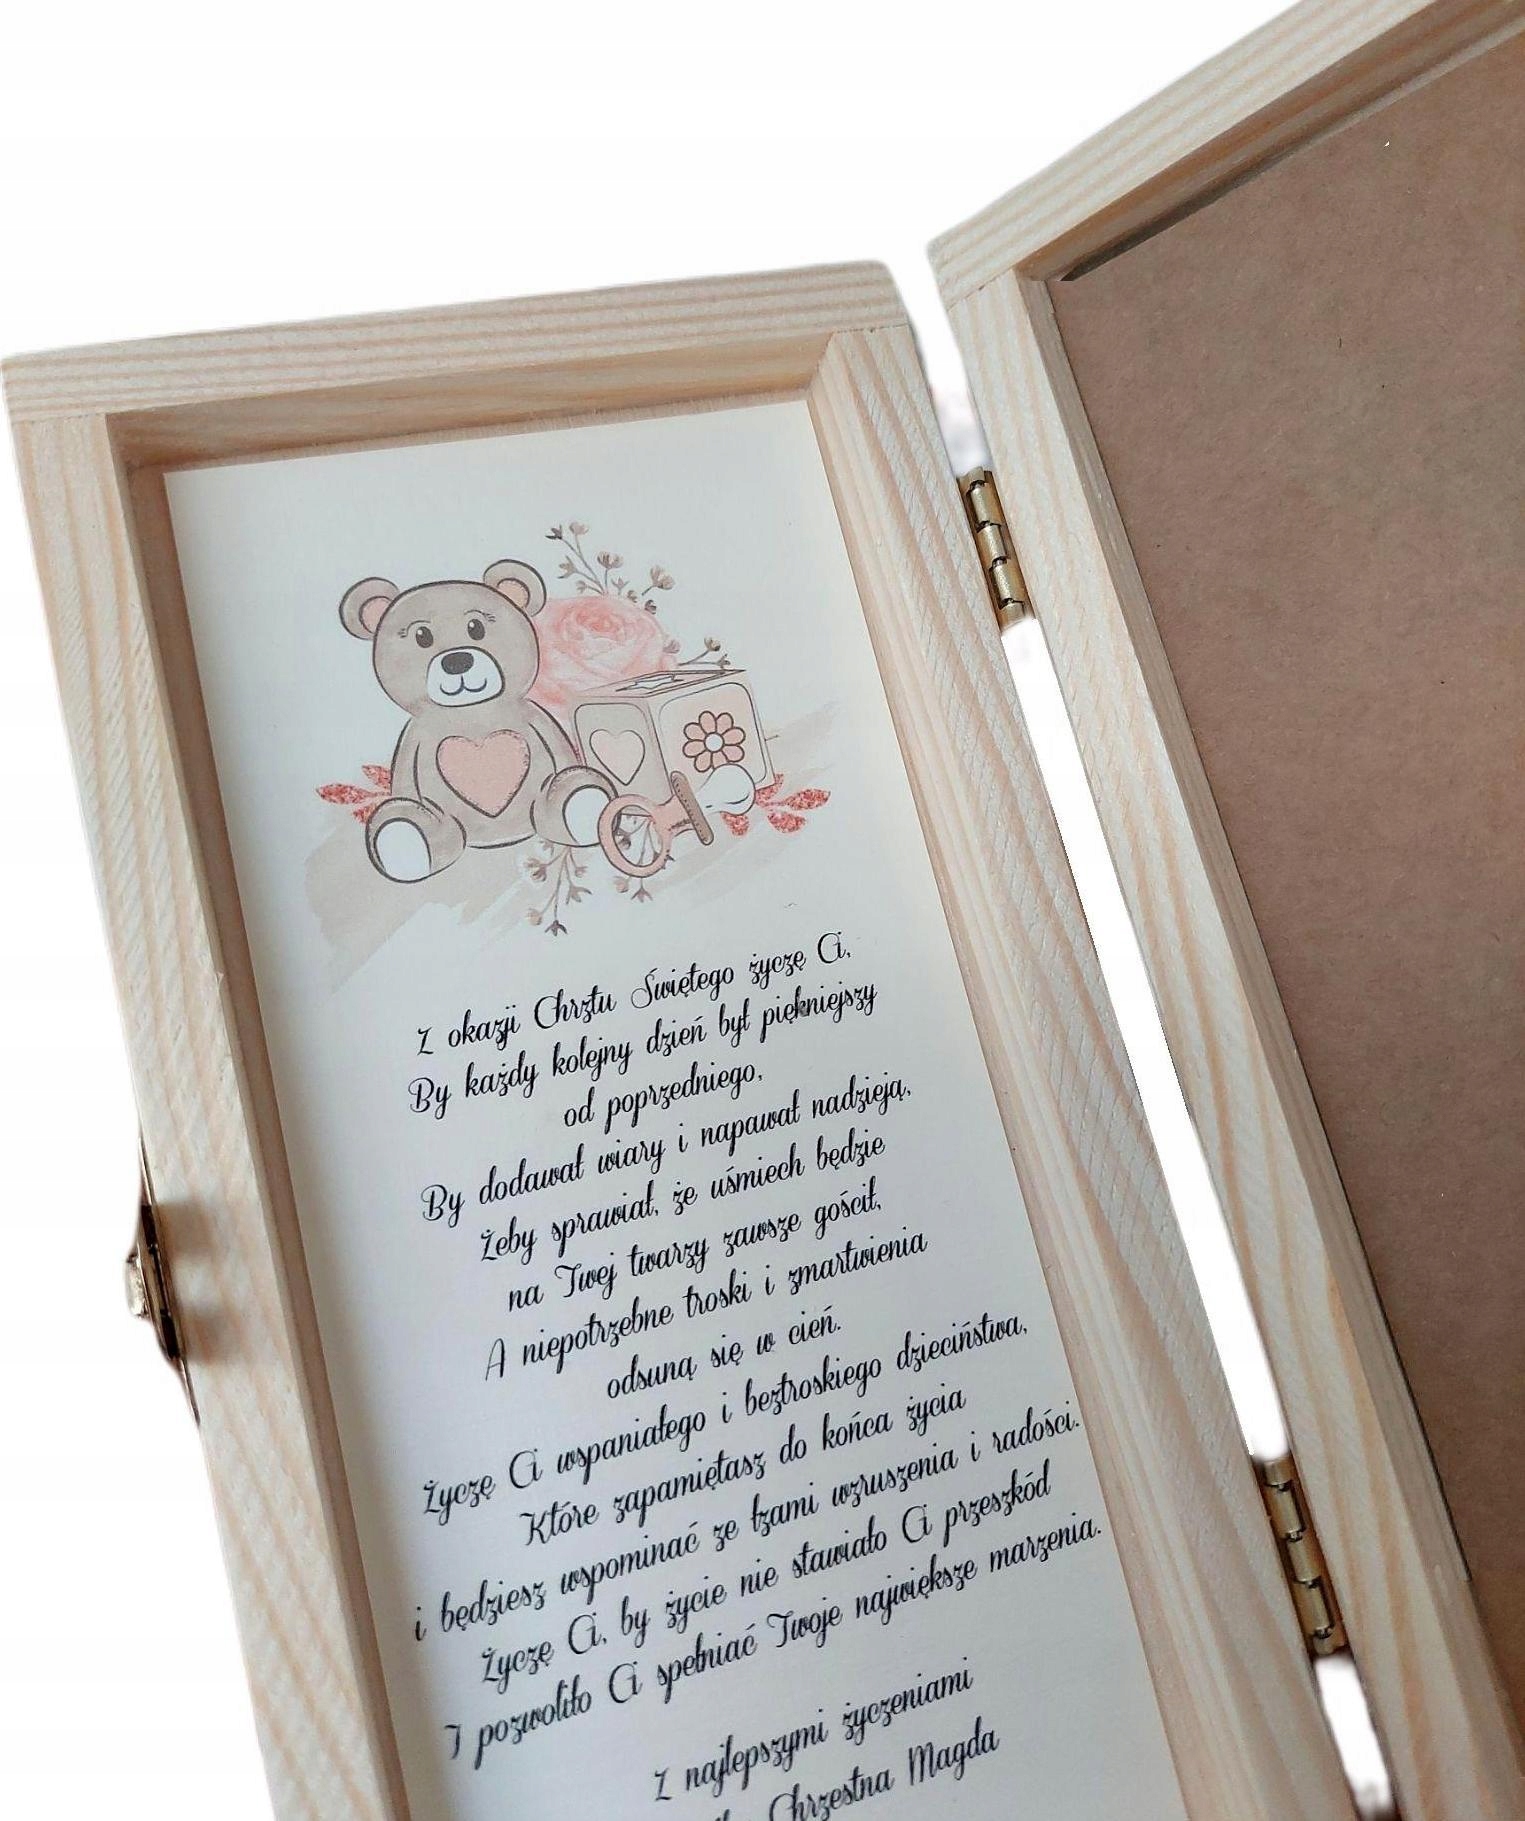 Z okazji Chrztu Świętego życzę Ci,
By każdy kolejny dzień był piękniejszy
od poprzedniego,
By dodawał wiary i napawał nadzieją,
Żeby sprawiał, że uśmiech będzie
na Twej twarzy zawsze gościł,
A niepotrzebne troski i zmartwienia
odsuną się w cień.
Życzę Ci wspaniałego i beztroskiego dzieciństwa,
Które zapamiętasz do końca życia
i będziesz wspominać ze łzami wzruszenia i radości.
Życzę Ci, by życie nie stawiało Ci przeszkód
I pozwoliło Ci spełniać Twoje największe marzenia.
Z najlepszymi życzeniami
Chrzestna Magda